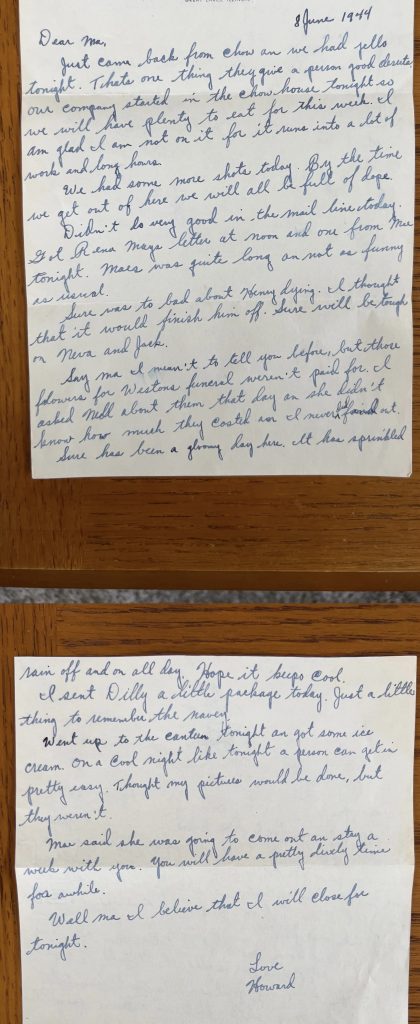 GREAT LAKES, ILLINOIS
8 June 1944
Dear Ma,
Just came back from chow an we had jello
tonight. Thats one thing they give a person good deserts
our company started in the chow house tonight so
we will have plenty to eat for this week. I
am glad I am not on it for it runs into a lot of
work and long hours.
We had some more shots today. By the time
we get out of here we will all be full of dope.
Didn't do very good in the mail line today.
Got Rena Mays letter at noon and one from Mae
tonight. Maes was quite long an not as funny
as usual.
Sure was to bad about Henry dying. I thought
that it would finish him off. Sure will be tough
on Neva and Jack.
Say ma I mean't to tell you before, but those
flowers for Westons funeral weren't paid for. I
asked Nell about them that day an she didn't
know how much they costed an I never did find out.
Sure has been a gloomy day here. It has sprinkled
rain off and on all day. Hope it keeps cool.
I sent Dilly a little package today. Just a little
thing to remember the navey.
Went up to the canteen tonight an got some ice
cream. On a cool night like tonight a person can get in
pretty easy. Thought my pictures would be done, but
they weren't.
Mae said she was going to come out an stay a
week with you. You will have a pretty lively time
for awhile.
Well ma I believe that I will close for
tonight.
Love
Howard